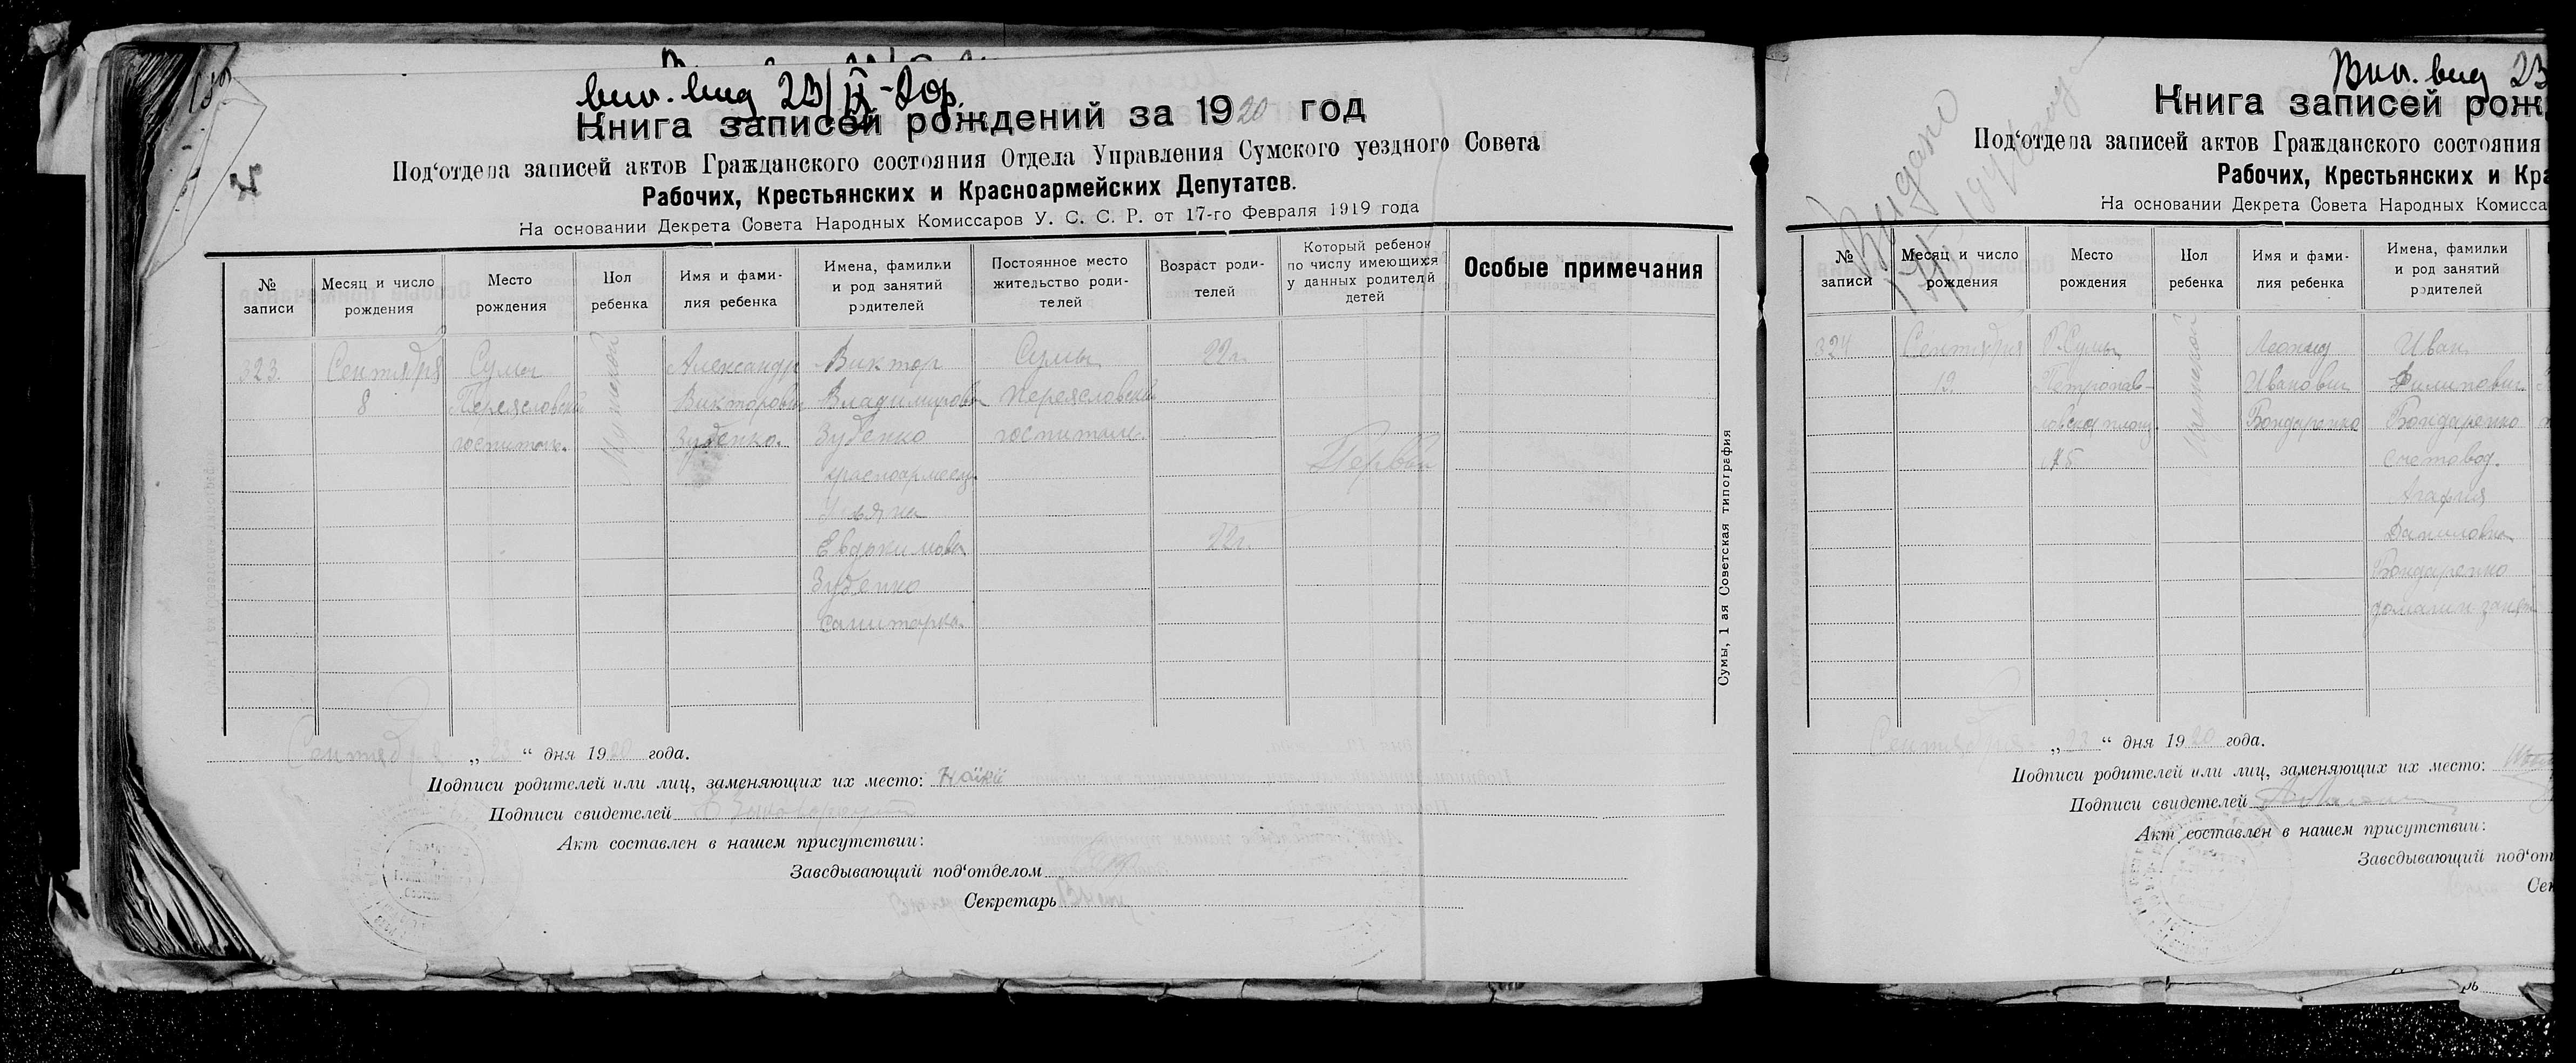 вип. вид 23/IX-20р.
Книга записей рождений за 1920 год
Под‘отдела записей актов Гражданского состояния Отдела Управления Сумского уездного Совета
Рабочих, Крестьянских и Красноармейских Депутатов.
На основании Декрета Совета Народных Комиссаров У. С. С. Р. от 17-го Февраля 1919 года
№ записи
Месяц и число рождения
Место рождения
Пол ребенка
Имя и фами-
лия ребенка
Имена, фамилии
и род занятий
родителей
Постоянное место
жительство роди-
телей
Возраст роди-
телей
Который ребенок
по числу имеющихся
у данных родителй
детей
Особые примечания
323.
Сентября
8
Сумы
Переясловский
госпиталь.
Мужеской
Александр
Викторович
Зубенко.
Виктор
Владимирович
Зубенко
красноармеец.
Евдокимовна
Зубенко
санитарка.
Сумы
Переясловский
госпиталь.
22г.
22г.
Первый
Сумы, 1 ая Советская типография
Сентября „ 23 “ дня 1920 года.
Подписи родителей или лиц, заменяющих их место:
Подписи свидетелей
Акт составлен в нашем присутствии:
Заведывающий под‘отделом
Секретарь
Вип. вид 23
Видано
Книга записей рож
Под‘отдела записей актов Гражданского состояния
Рабочих, Крестьянских и Кра
На основании Декрета Совета Народных Комисса
№ записи
Месяц и число рождения
Место рождения
Пол ребенка
Имя и фами-
лия ребенка
Имена, фамилии
и род занятий
родителей
324
Сентября
12.
Г. Сумы,
Петропав-
ловская площ.
№5
Мужеской
Леонид
Иванович
Бондаренко
Иван
Филипович
Бондаренко
счетовод.
Агафия
Даниловна
Бондаренко
домашн. занят.
Сентября „ 23 “ дня 1920 года.
Подписи родителей или лиц, заменяющих их место:
Подписи свидетелей
Акт составлен в нашем присутствии:
Заведывающий под‘от
Сек